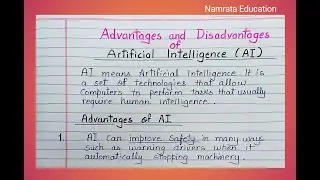 Namrata Education
Advantages and Disadvantages
of
Artificial Intelligence (AI)
AI means Artificial Intelligence. It is
a set of technologies that allow
Computers to perform tasks that usually
require human intelligence.
Advantages of AI
1. AI can improve Safety in many ways
such as warning drivers when it
automatically stopping machinery.